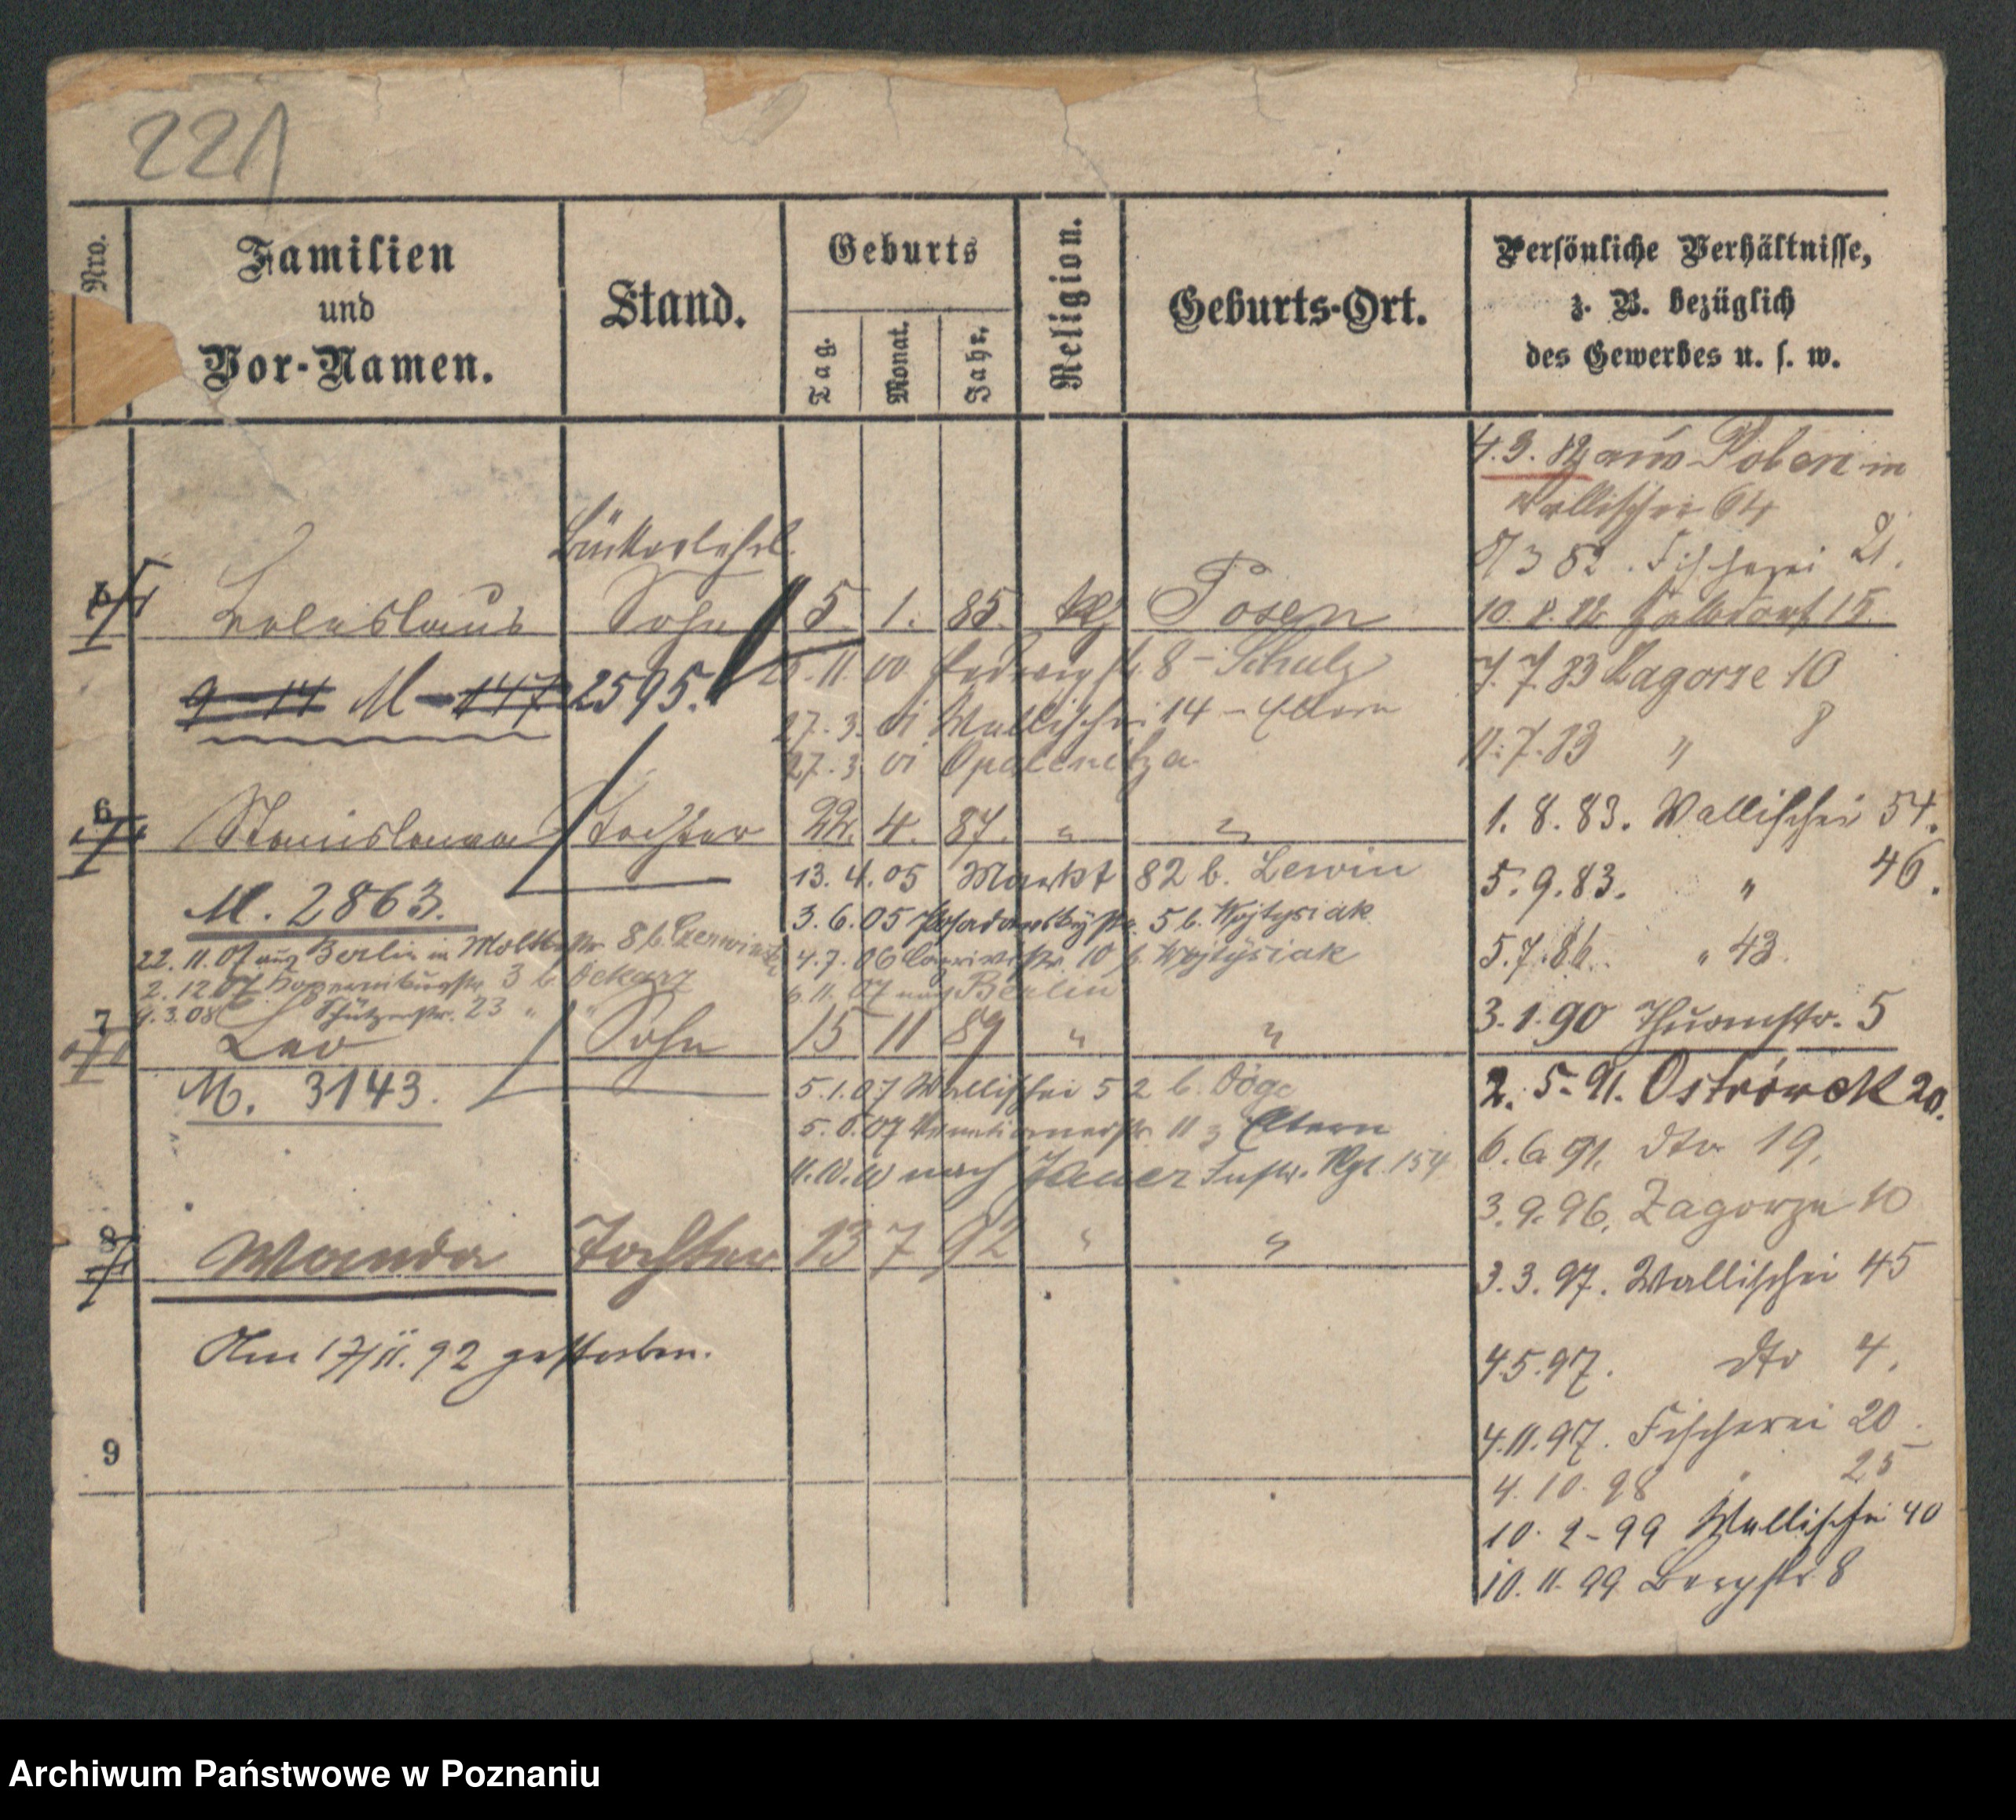 221
Nro.
Familien
und
Vor-Namen.
Stand.
Geburts
Tag.
Monat.
Jahr.
Religion.
Geburts-Ort.
Persönliche Verhältnisse,
z. B. bezüglich
des Gewerbes u. s. w.
Boleslaus Sohn 5. 1. 85. Posen
9-14 M-147 2595.
11. 00 8 - Schulz
27. 3. 01 Wallischei 14 - Eltern
27. 3. 01 Opalenitza
6 Stanislawa Tochter 22. 4. 87. " "
M. 2863.
13. 4. 05 Markt 82 b. Lewin
3. 6. 05 5 b. Wojtysiak
4. 7. 06 10 b. Wojtysiak
6. 11. 07 nach Berlin
22. 11. 07 aus Berlin in Moltkestr 8 b.
2. 12. 07 3 b.
4. 3. 08 Schützenstr. 23 "
7 Leo Sohn 15 11 89 " "
M. 3143.
5. 1. 07 Wallischei 52 b.
11 z Eltern
nach Jauer Inftr. Rgt. 154
8 Wanda Tochter 13 7 92 " "
Am 17/11. 92 gestorben.
9
4. 3. 82 aus Polen in
Wallischei 64
3 82. Fischerei 21.
7. 7. 83 Zagorze 10
11. 7. 83 " 8
1. 8. 83. Wallischei 54.
5. 9. 83. " 46.
5. 7. 86. " 43.
3. 1. 90 Thurmstr. 5
2. 5. 91. Ostrówek 20.
6. 6. 91. dto 19.
3. 9. 96. Zagorze 10
3. 3. 97. Wallischei 45
4. 5. 97. dto 4.
4. 11. 97. Fischerei 20
4. 10. 98 " 25
10. 2 - 99 Wallischei 40
10. 11. 99 Bergstr 8
Archiwum Państwowe w Poznaniu